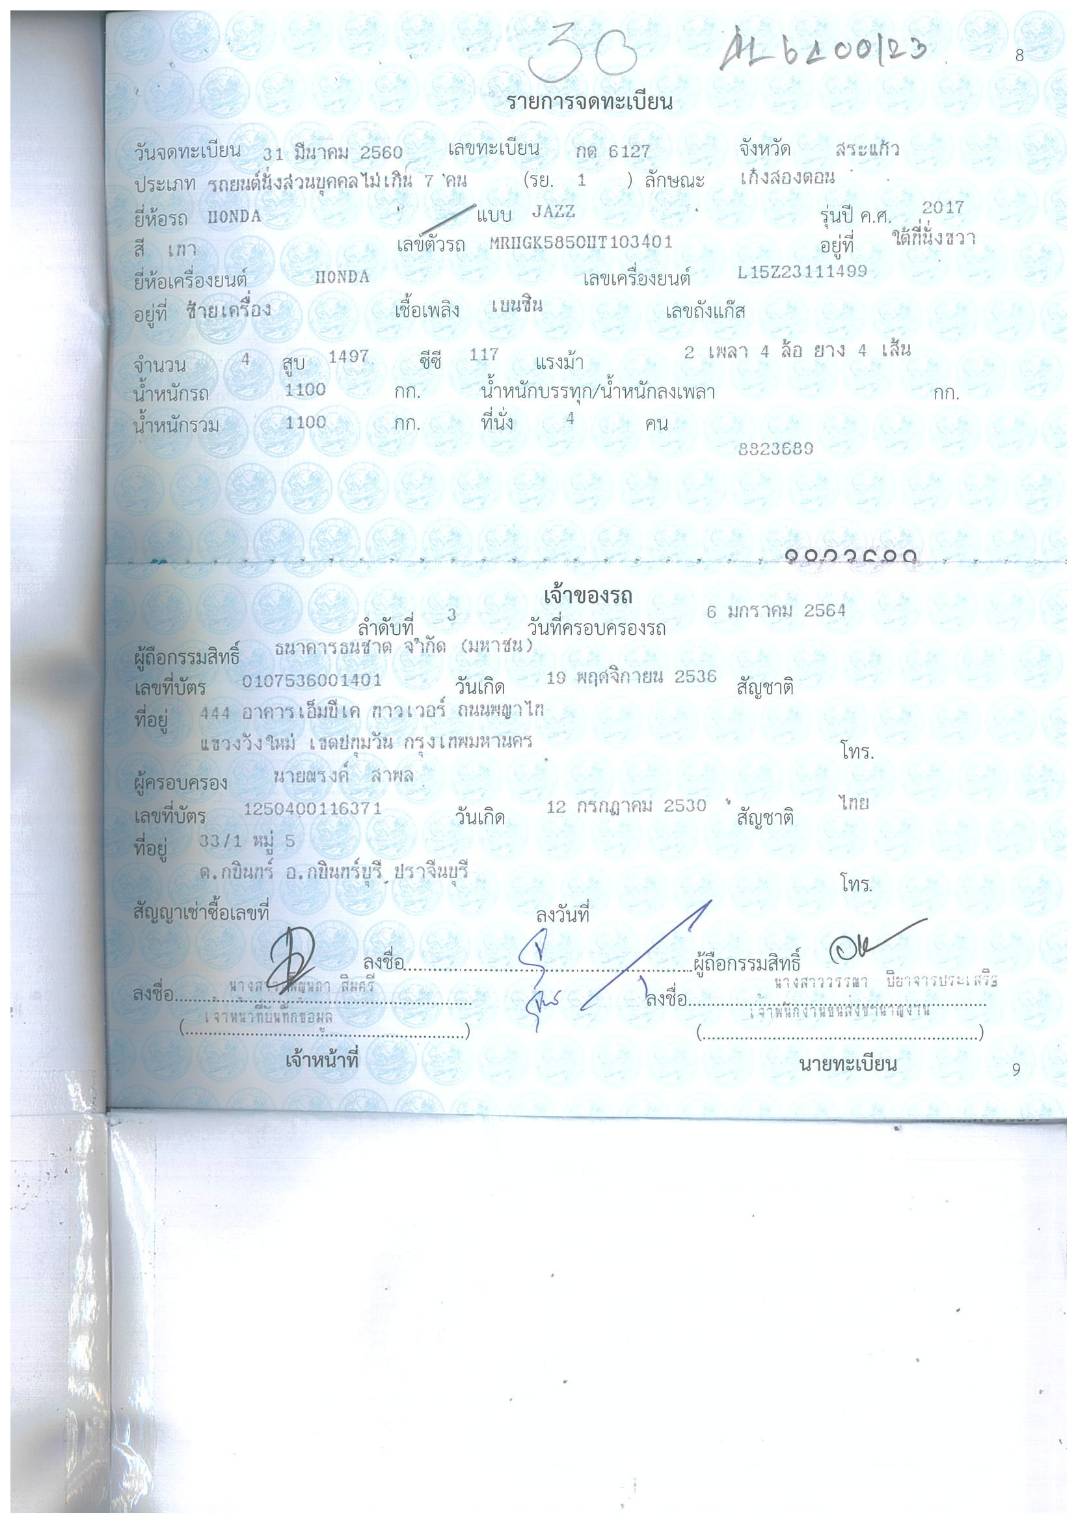 30
8
รายการจดทะเบียน
วันจดทะเบียน 31 มีนาคม 2560 เลขทะเบียน กต 6127 จังหวัด สระแก้ว
ประเภท รถยนต์นั่งส่วนบุคคลไม่เกิน 7 คน (รย. 1 ) ลักษณะ เก๋งสองตอน
ยี่ห้อรถ HONDA แบบ JAZZ รุ่นปี ค.ศ. 2017
สี เทา เลขตัวรถ MRHGK5850HT103401 อยู่ที่ ใต้ที่นั่งขวา
ยี่ห้อเครื่องยนต์ HONDA เลขเครื่องยนต์ L15Z23111499
อยู่ที่ ซ้ายเครื่อง เชื้อเพลิง เบนซิน เลขถังแก๊ส
จำนวน 4 สูบ 1497 ซีซี 117 แรงม้า 2 เพลา 4 ล้อ ยาง 4 เส้น
น้ำหนักรถ 1100 กก. น้ำหนักบรรทุก/น้ำหนักลงเพลา กก.
น้ำหนักรวม 1100 กก. ที่นั่ง 4 คน
8823689
เจ้าของรถ
ลำดับที่ 3 วันที่ครอบครองรถ 6 มกราคม 2564
ผู้ถือกรรมสิทธิ์ ธนาคารธนชาต จำกัด (มหาชน)
เลขที่บัตร 0107536001401 วันเกิด 19 พฤศจิกายน 2536 สัญชาติ
ที่อยู่ 444 อาคารเอ็มบีเค ทาวเวอร์ ถนนพญาไท
แขวงวังใหม่ เขตปทุมวัน กรุงเทพมหานคร โทร.
ผู้ครอบครอง นายณรงค์ ลำพล
เลขที่บัตร 1250400116371 วันเกิด 12 กรกฎาคม 2530 สัญชาติ ไทย
ที่อยู่ 33/1 หมู่ 5
ต.กบินทร์ อ.กบินทร์บุรี ปราจีนบุรี โทร.
สัญญาเช่าซื้อเลขที่ ลงวันที่
ลงชื่อ ผู้ถือกรรมสิทธิ์
ลงชื่อ ลงชื่อ นางสาววรรณา ปิยาจารประเสริฐ
เจ้าหน้าที่บันทึกข้อมูล เจ้าพนักงานขนส่งชำนาญงาน
เจ้าหน้าที่ นายทะเบียน
9